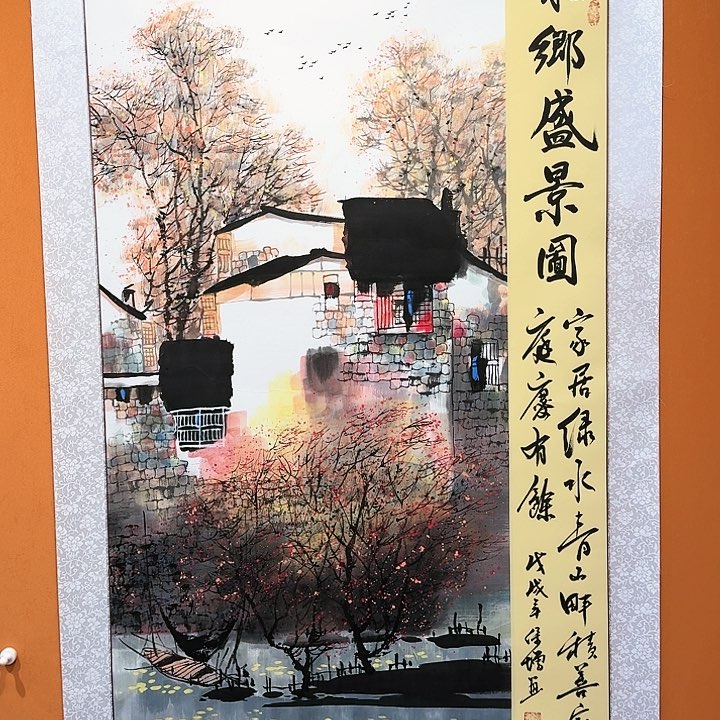 鄉盛景圖
家居绿水青山畔積善
庭慶有餘
戊戌年